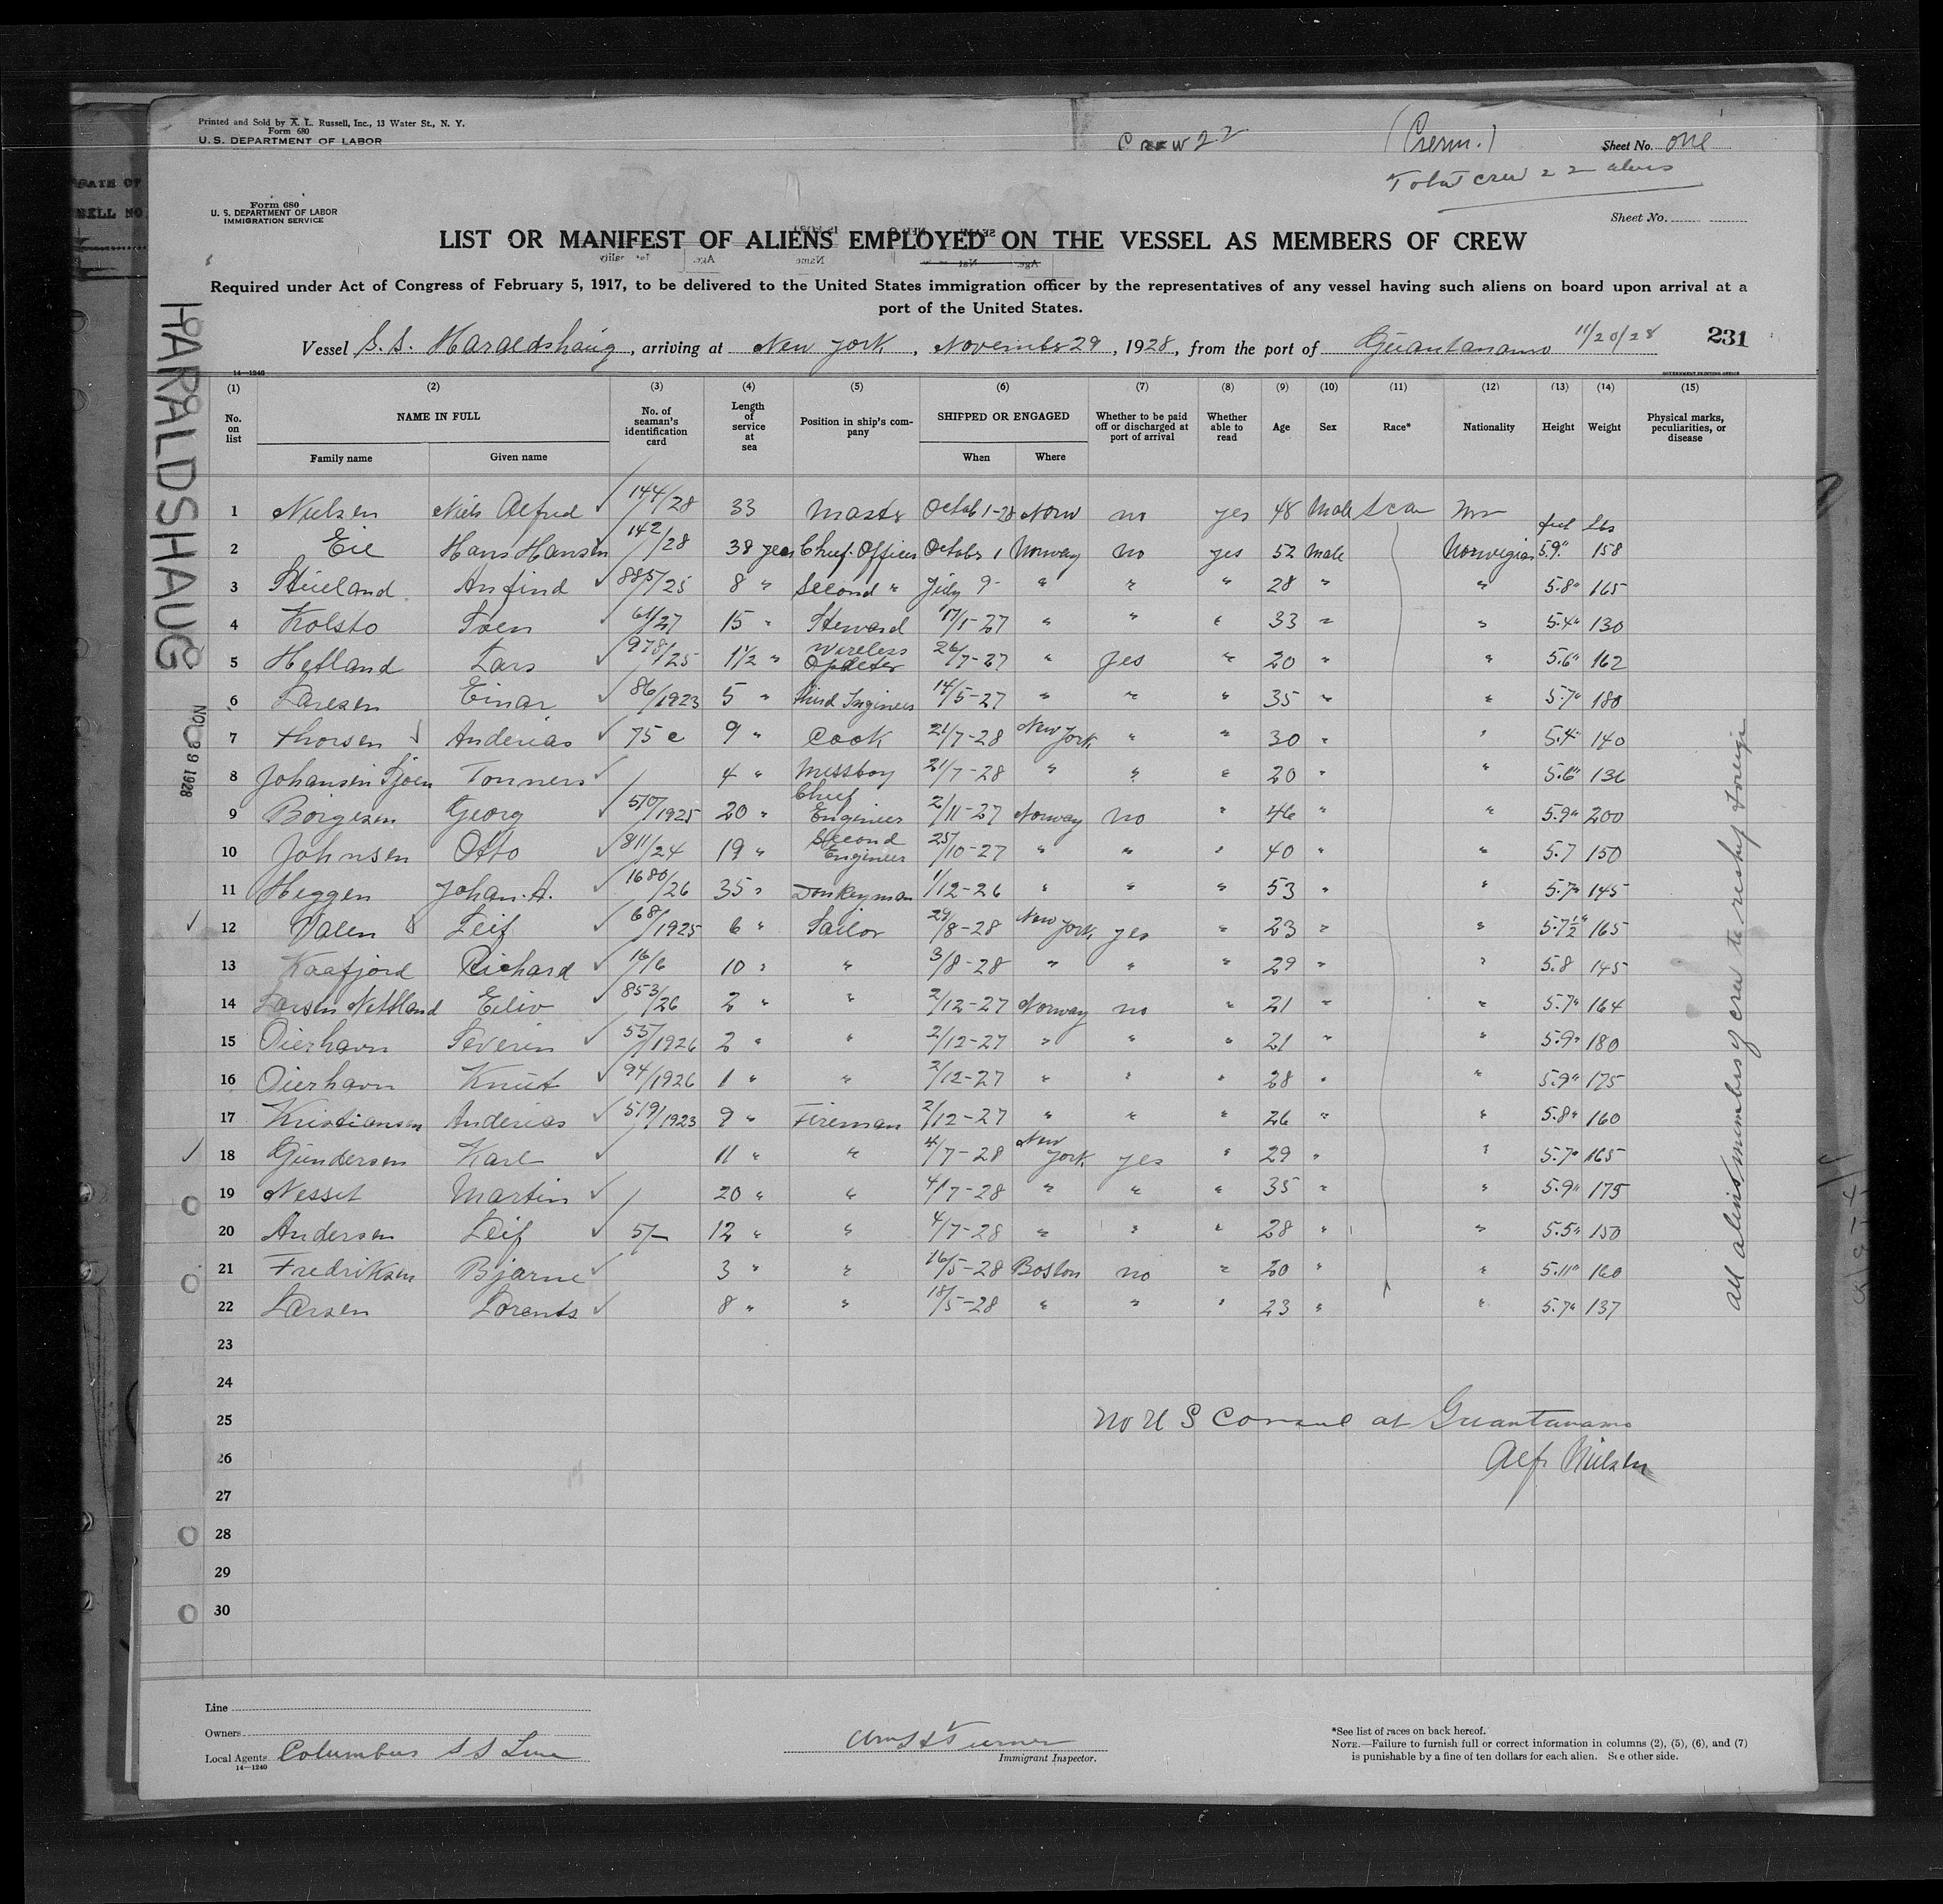 Printed and Sold by A. L. Russell, Inc., 13 Water St., N. Y.
Form 680
U. S. DEPARTMENT OF LABOR
Crew 22
Sheet No. one
Total crew 22 aliens
Form 680
U. S. DEPARTMENT OF LABOR
IMMIGRATION SERVICE
Sheet No.
LIST OR MANIFEST OF ALIENS EMPLOYED ON THE VESSEL AS MEMBERS OF CREW
Required under Act of Congress of February 5, 1917, to be delivered to the United States immigration officer by the representatives of any vessel having such aliens on board upon arrival at a
port of the United States.
Vessel S. S. Haraldshaug, arriving at New York, November 29, 1928, from the port of Guantanamo 11/20/28 231
14—1240 GOVERNMENT PRINTING OFFICE
(1) (2) (3) (4) (5) (6) (7) (8) (9) (10) (11) (12) (13) (14) (15)
No. on list NAME IN FULL No. of seaman's identification card Length of service at sea Position in ship's company SHIPPED OR ENGAGED Whether to be paid off or discharged at port of arrival Whether able to read Age Sex Race* Nationality Height Weight Physical marks, peculiarities, or disease
Family name Given name When Where
1 Nielsen Niels Alfred ✓ 144/28 33 Master Octob 1-28 Norw no yes 48 Male Sca Nor
feet lbs
2 Eie Hans Hansen 142/28 38 years Chief Officer Octobr 1 Norway no yes 52 Male Norwegian 5.9" 158
3 Stueland Anfind ✓ 885/25 8 " Second " July 9- " " " 28 " " 5.8" 165
4 Kolsto Sven ✓ 61/27 15 " Steward 17/1-27 " " " 33 " " 5.4" 130
5 Hefland Lars ✓ 978/25 1½ " Wireless Opderter 26/7-27 " yes " 20 " " 5.6" 162
6 Larsen Einar ✓ 86/1923 5 " third Ingineer 14/5-27 " " " 35 " " 5.7" 180
7 Thorsen Anderias ✓ 75 c 9 " Cook 21/7-28 New York " " 30 " " 5.4" 140
8 Johansen Tjoen Tonners ✓ / 4 " Messboy 21/7-28 " " " 20 " " 5.6" 136
9 Borgesen Georg ✓ 510/1925 20 " Chief Engineer 2/11-27 Norway no " 46 " " 5.9" 200
10 Johnsen Otto ✓ 811/24 19 " Second Engineer 25/10-27 " " " 40 " " 5.7 150
11 Heggen Johan. A. ✓ 1680/26 35 " Donkeyman 1/12-26 " " " 53 " " 5.7" 145
✓ 12 Valen Leif ✓ 68/1925 6 " Sailor 24/8-28 New York yes " 23 " " 5.7½" 165
13 Kaafjord Richard ✓ 16/6 10 " " 3/8-28 " " " 29 " " 5.8 145
14 Larsen Nettland Eiliv ✓ 853/26 2 " " 2/12-27 Norway no " 21 " " 5.7" 164
15 Oierhavn Severin ✓ 55/1926 2 " " 2/12-27 " " " 21 " " 5.9" 180
16 Oierhavn Knut ✓ 94/1926 1 " " 2/12-27 " " " 28 " " 5.9" 175
17 Kristiansen Anderias ✓ 519/1923 9 " Fireman 2/12-27 " " " 26 " " 5.8" 160
✓ 18 Gundersen Karl ✓ 11 " " 4/7-28 New York yes " 29 " " 5.7" 165
19 Nesset Martin ✓ / 20 " " 4/7-28 " " " 35 " " 5.9" 175
20 Andersen Leif ✓ 5/- 12 " " 4/7-28 " " " 28 " " 5.5" 150
21 Fredriksen Bjarne ✓ 3 " " 16/5-28 Boston no " 20 " " 5.11" 160
22 Larsen Lorents ✓ 8 " " 18/5-28 " " " 23 " " 5.7" 137
23
24
25 No U S Consul at Guantanamo
26 Alf. Nielsen
27
28
29
30
HARALDSHAUG
NOV 29 1928
all aliens/members of crew to reship foreign
Line
Owners
Local Agents Columbus S S Line
14—1240
Immigrant Inspector.
*See list of races on back hereof.
NOTE.—Failure to furnish full or correct information in columns (2), (5), (6), and (7)
is punishable by a fine of ten dollars for each alien. See other side.